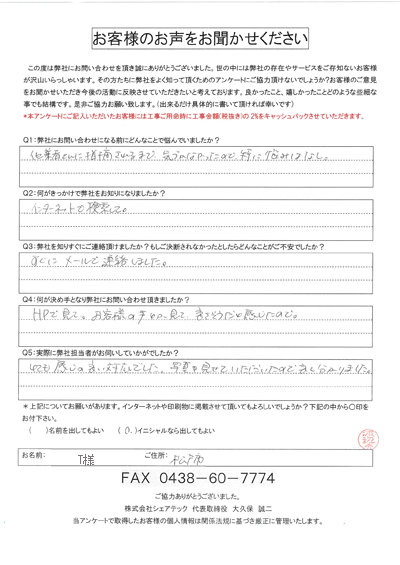 お客様のお声をお聞かせください
この度は弊社にお問い合わせを頂き誠にありがとうございました。世の中には弊社の存在やサービスをご存知ないお客様
が沢山いらっしゃいます。その方たちに弊社をよく知って頂くためのアンケートにご協力頂けないでしょうか?お客様のご意見
をお聞かせいただき今後の活動に反映させていただきたいと考えております。良かったこと、嬉しかったことどのような些細な
事でも結構です。是非ご協力お願い致します。(出来るだけ具体的に書いて頂ければ幸いです)
*本アンケートにご記入いただいたお客様には工事ご用命時に工事金額(税抜き)の2%をキャッシュバックさせていただきます。
Q1:弊社にお問い合わせになる前にどんなことで悩んでいましたか?
他業者さんに指摘されるまで 気づかなかったので、特に悩みはなし。
Q2:何がきっかけで弊社をお知りになりましたか?
インターネットで検索して。
Q3:弊社を知りすぐにご連絡頂けましたか?もしご決断されなかったとしたらどんなことがご不安でしたか?
すぐに メールで連絡しました。
Q4:何が決め手となり弊社にお問い合わせ頂きましたか?
HPで見て。お客様の声などを見て、良さそうだと感じたので。
Q5:実際に弊社担当者がお伺いしていかがでしたか?
とても感じの良い対応でした。写真を見せていただいたのでよく分かりました。
*上記についてお願いがあります。インターネットや印刷物に掲載させて頂いてもよろしいでしょうか?下記の中から〇印を
お付下さい。
( )名前を出してもよい ( 〇 )イニシャルなら出してもよい
お名前: T様 ご住所: 松戸市
FAX 0438-60-7774
ご協力ありがとうございました。
株式会社シェアテック 代表取締役 大久保 誠二
当アンケートで取得したお客様の個人情報は関係法規に基づき厳正に管理いたします。